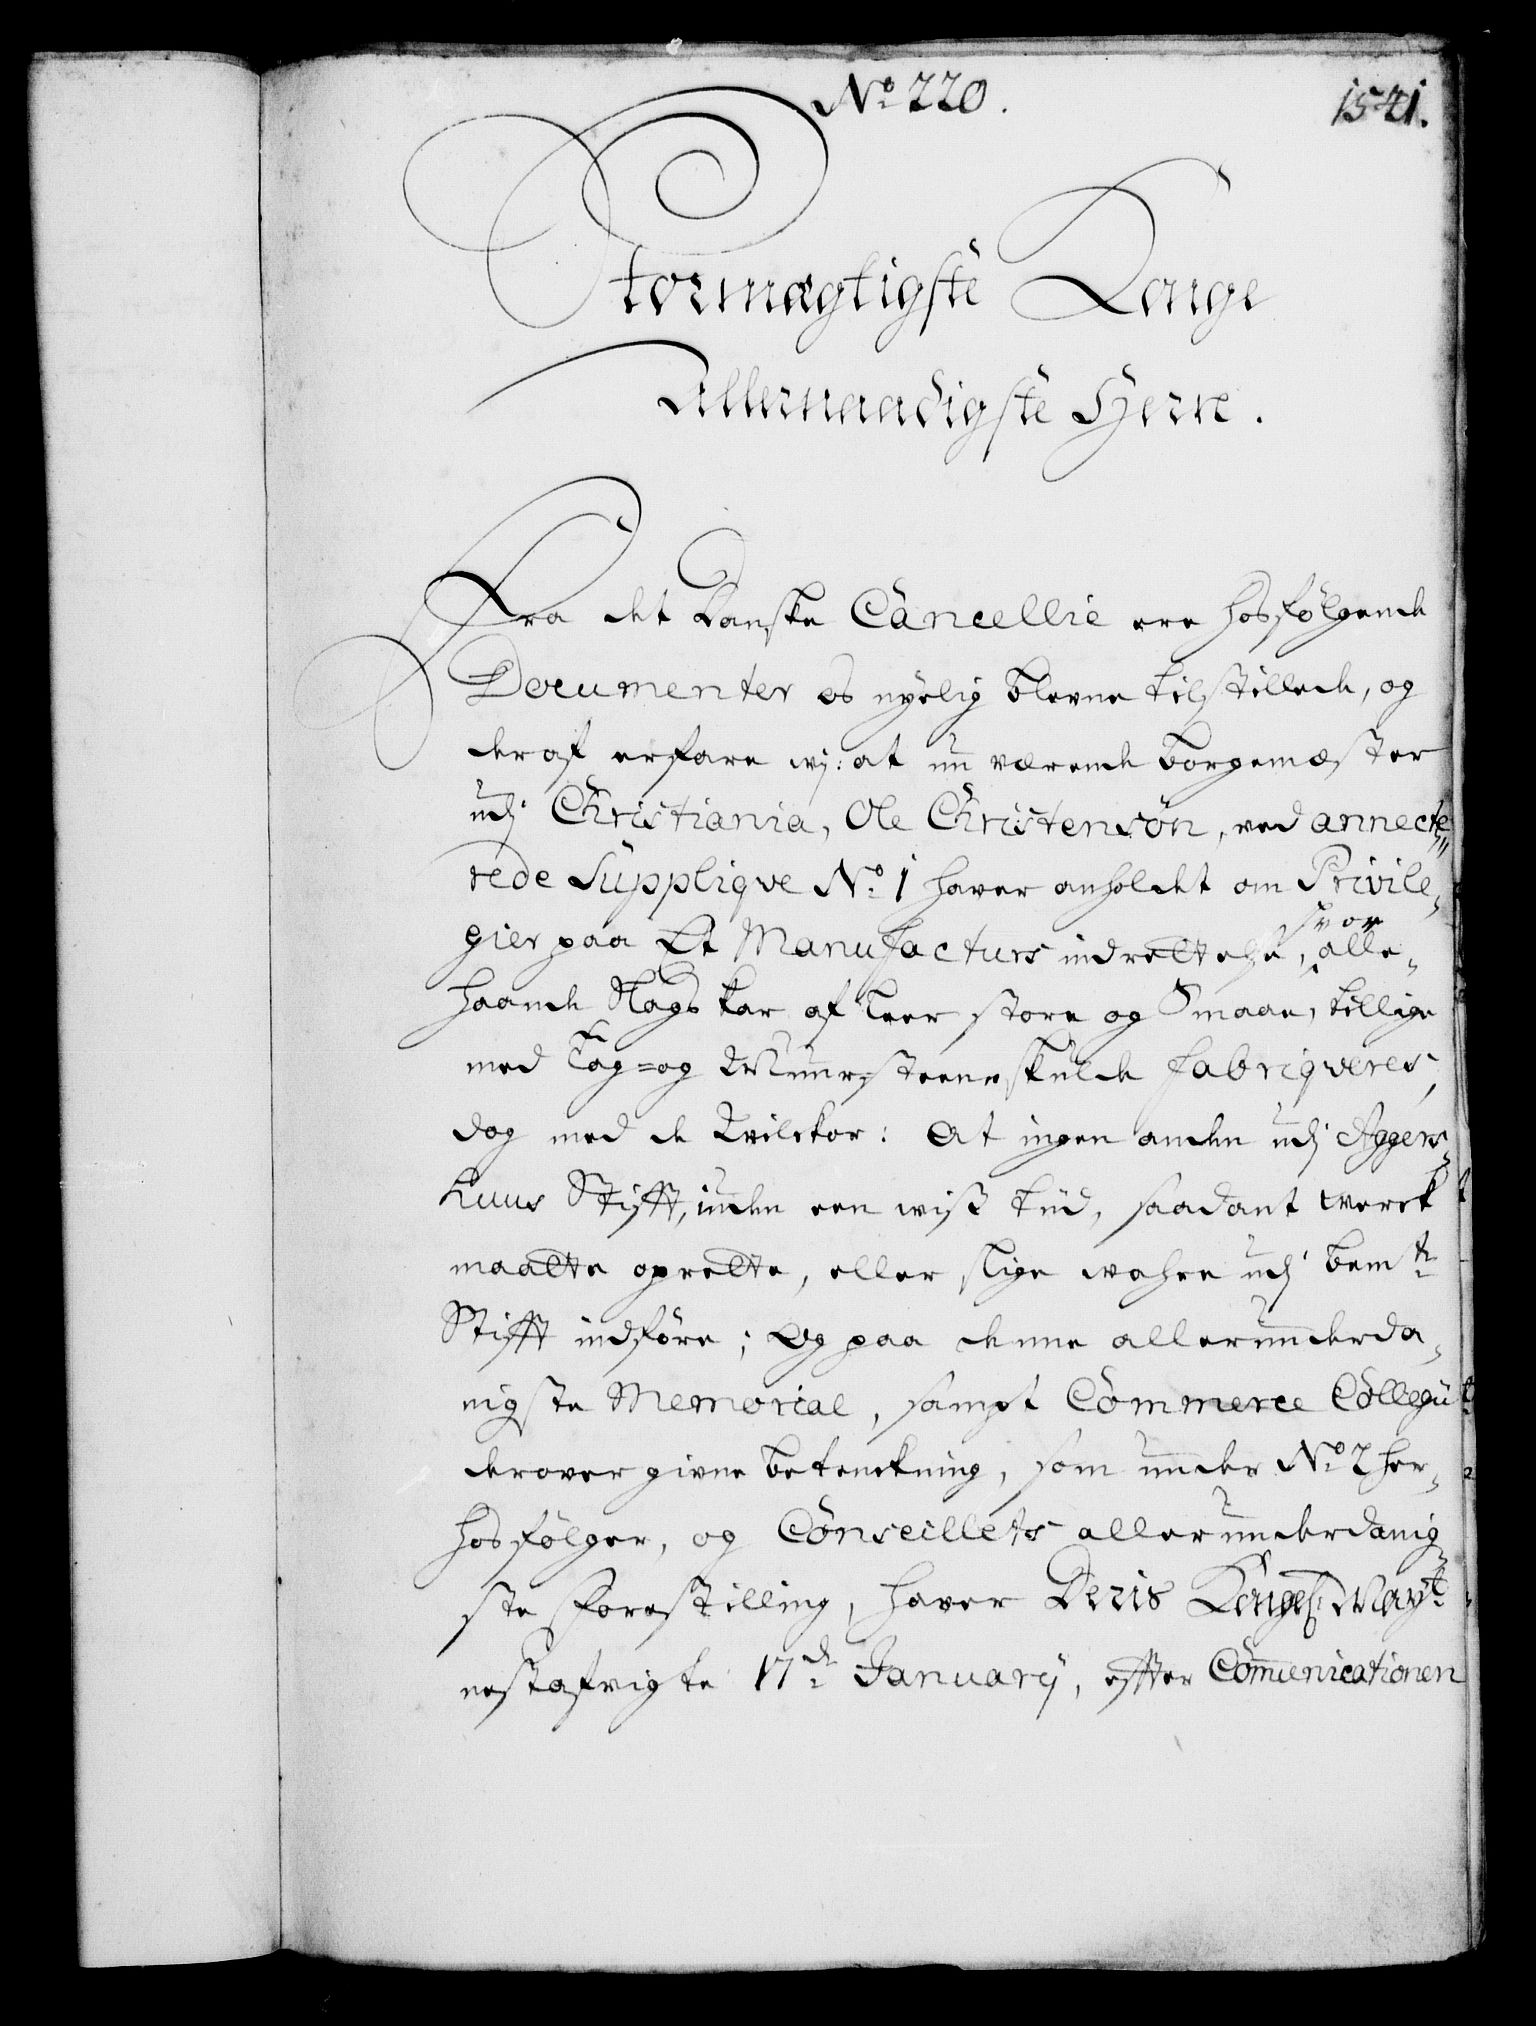 No. 220.
1541.
Stormægtigste Konge
Allernaadigste Herre.
Fra det Danske Cancellie ere hosfölgende
Documenter os nyelig blevne tilstillede, og
deraf erfare wj: at nu værende borgemæster
udj Christiania, Ole Christensön, ved annecte„
rede Supplique No. 1 haver anholdet om Privile„
gier paa Et Manufacturs indrettelse, hvor alle„
haande Slags kar af leer store og Smaae, tillige
med Tag= og Muur=steene skulde fabriqveres,
dog med de Wilckor: At ingen anden udj Aggers„
huus Stifft, inden een wiss tiid, saadant werck
maatte oprette, eller slige wahre udj bemte
Stifft indföre; Og paa denne allerunderda„
nigste Memorial, sampt Commerce Collegii
derover givne betenckning, som under No. 2 her„
hosfölger, og Conseillets allerunderdanig„
ste Forestilling, haver Deris Kongel. Mayt.
nestafvigte 17de January, effter Communicationen